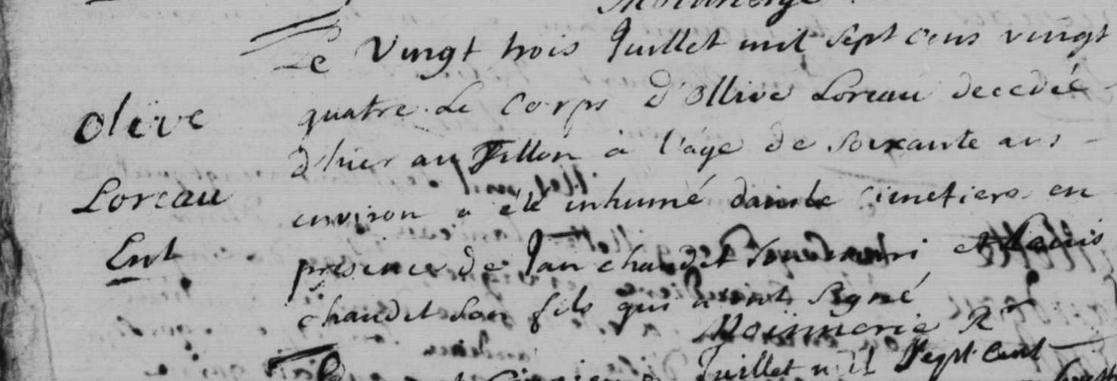 Le vingt trois Juillet mil sept cens vingt
quatre Le Corps d'Ollive Loreau decedée
d'hier au Tillon à l'age de soixante ans
environ a eté inhumé dans le cimetiere en
presence de Jan chaudet son mari et Louis
chaudet son fils qui signé
Olive
Loreau
Ent
Juillet mil sept cent